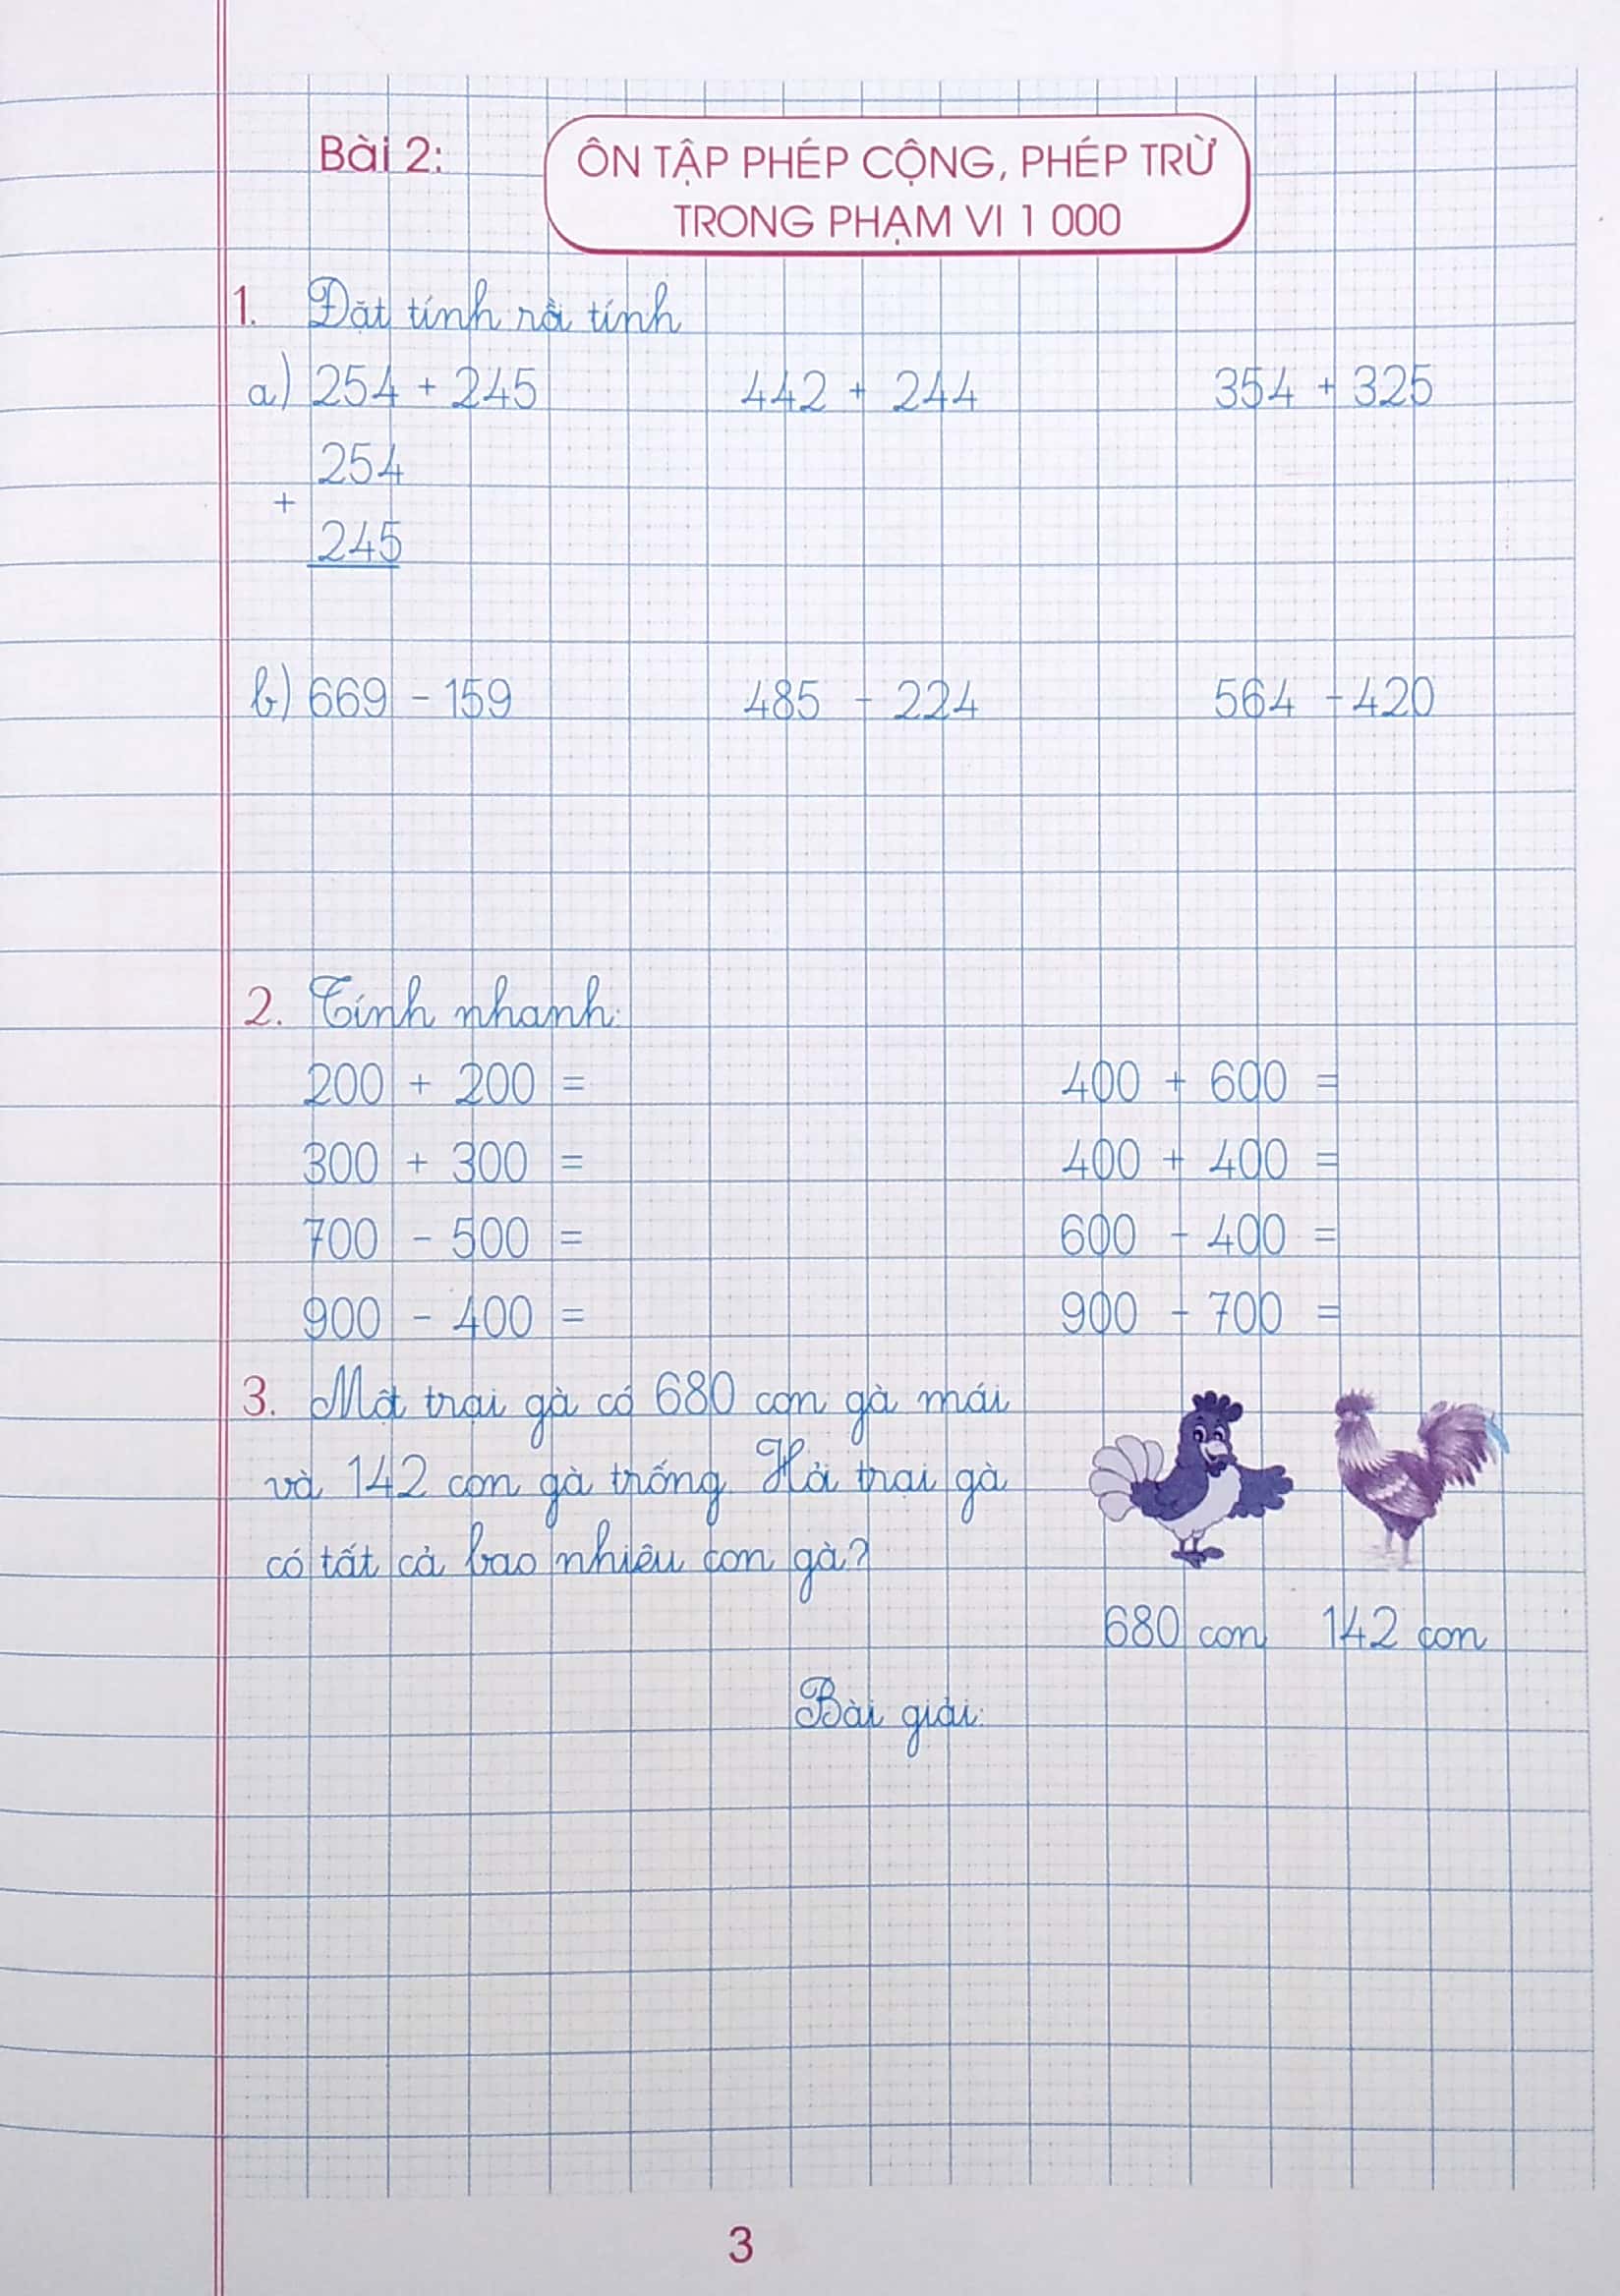 Bài 2:
ÔN TẬP PHÉP CỘNG, PHÉP TRỪ
TRONG PHẠM VI 1 000
1. Đặt tính rồi tính
a) 254 + 245 442 + 244 354 + 325
254
+
245
b) 669 - 159 485 - 224 564 - 420
2. Tính nhanh:
200 + 200 = 400 + 600 =
300 + 300 = 400 + 400 =
700 - 500 = 600 - 400 =
900 - 400 = 900 - 700 =
3. Một trại gà có 680 con gà mái
và 142 con gà trống. Hỏi trại gà
có tất cả bao nhiêu con gà?
680 con 142 con
Bài giải:
3